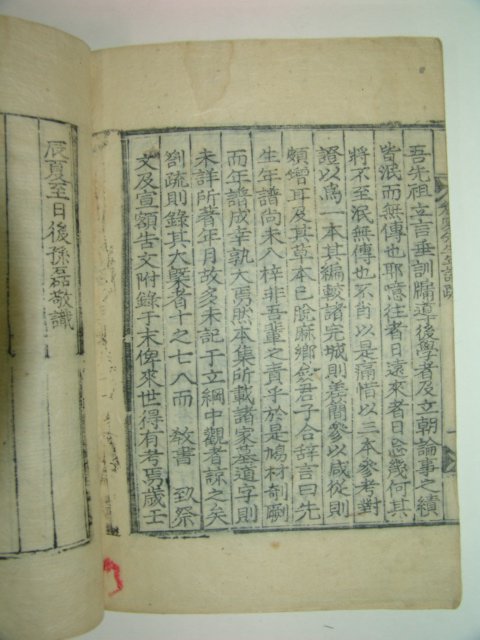 吾先祖立言垂訓牖道後學者及立朝論事之績
皆泯而無傳也耶噫往者日遠來者日忘幾何其
將不至泯無傳也不肖以是痛惜以三本參考對
證以爲一本其編較諸完城則善簡參以咸從則
頗增耳及其草本已脫麻鄉僉君子合辭言曰先
生年譜尚未入梓非吾輩之責乎於是鳩材剞劂
而年譜成幸孰大焉然本集所載諸家墓道字則
未詳所著年月故多未記于立綱中觀者諒之矣
劄疏則錄其大槩者十之七八而 敎書 致祭
文及宣額告文附錄于末俾來世得有考焉歲壬
辰夏至日後孫磊敬識